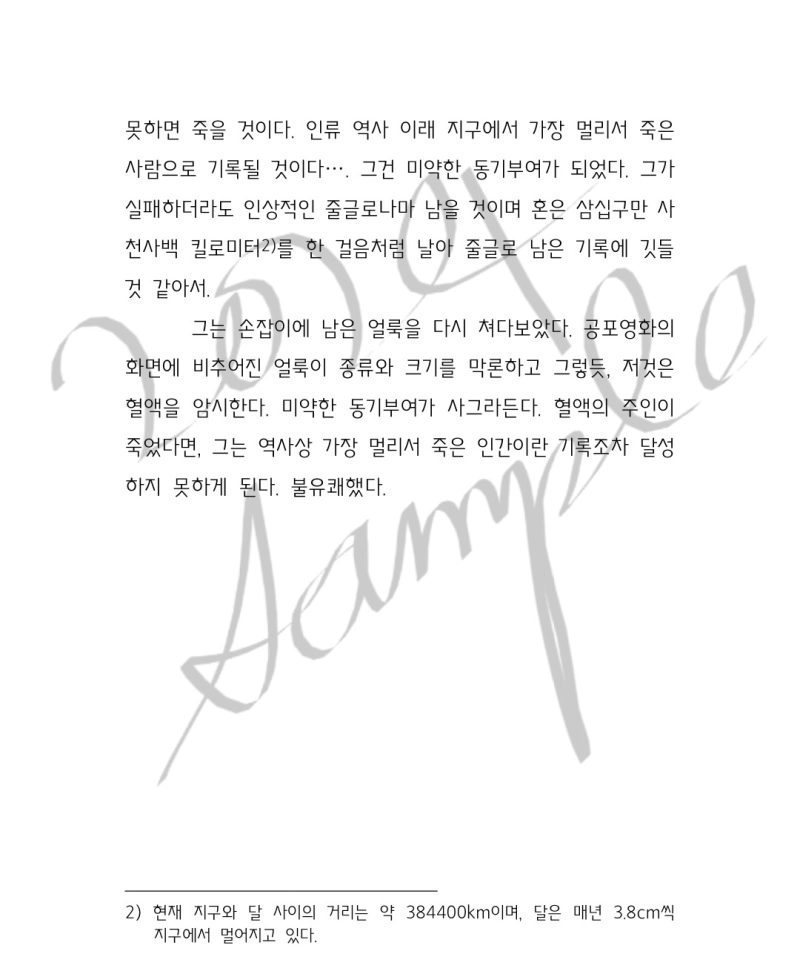 못하면 죽을 것이다. 인류 역사 이래 지구에서 가장 멀리서 죽은
사람으로 기록될 것이다…. 그건 미약한 동기부여가 되었다. 그가
실패하더라도 인상적인 줄글로나마 남을 것이며 혼은 삼십구만 사
천사백 킬로미터2)를 한 걸음처럼 날아 줄글로 남은 기록에 깃들
것 같아서.
그는 손잡이에 남은 얼룩을 다시 쳐다보았다. 공포영화의
화면에 비추어진 얼룩이 종류와 크기를 막론하고 그렇듯, 저것은
혈액을 암시한다. 미약한 동기부여가 사그라든다. 혈액의 주인이
죽었다면, 그는 역사상 가장 멀리서 죽은 인간이란 기록조차 달성
하지 못하게 된다. 불유쾌했다.
2) 현재 지구와 달 사이의 거리는 약 384400km이며, 달은 매년 3.8cm씩
지구에서 멀어지고 있다.